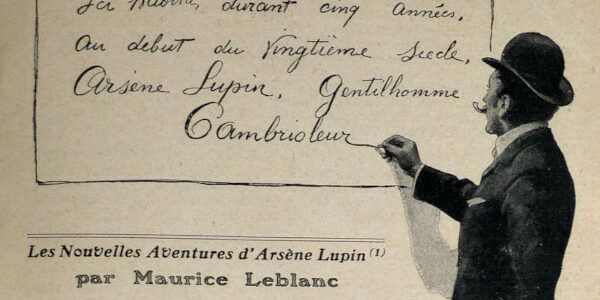 Ici habita, durant cinq années,
au début du vingtième siècle,
Arsène Lupin, Gentilhomme
Cambrioleur
Les Nouvelles Aventures d'Arsène Lupin (1)
par Maurice Leblanc